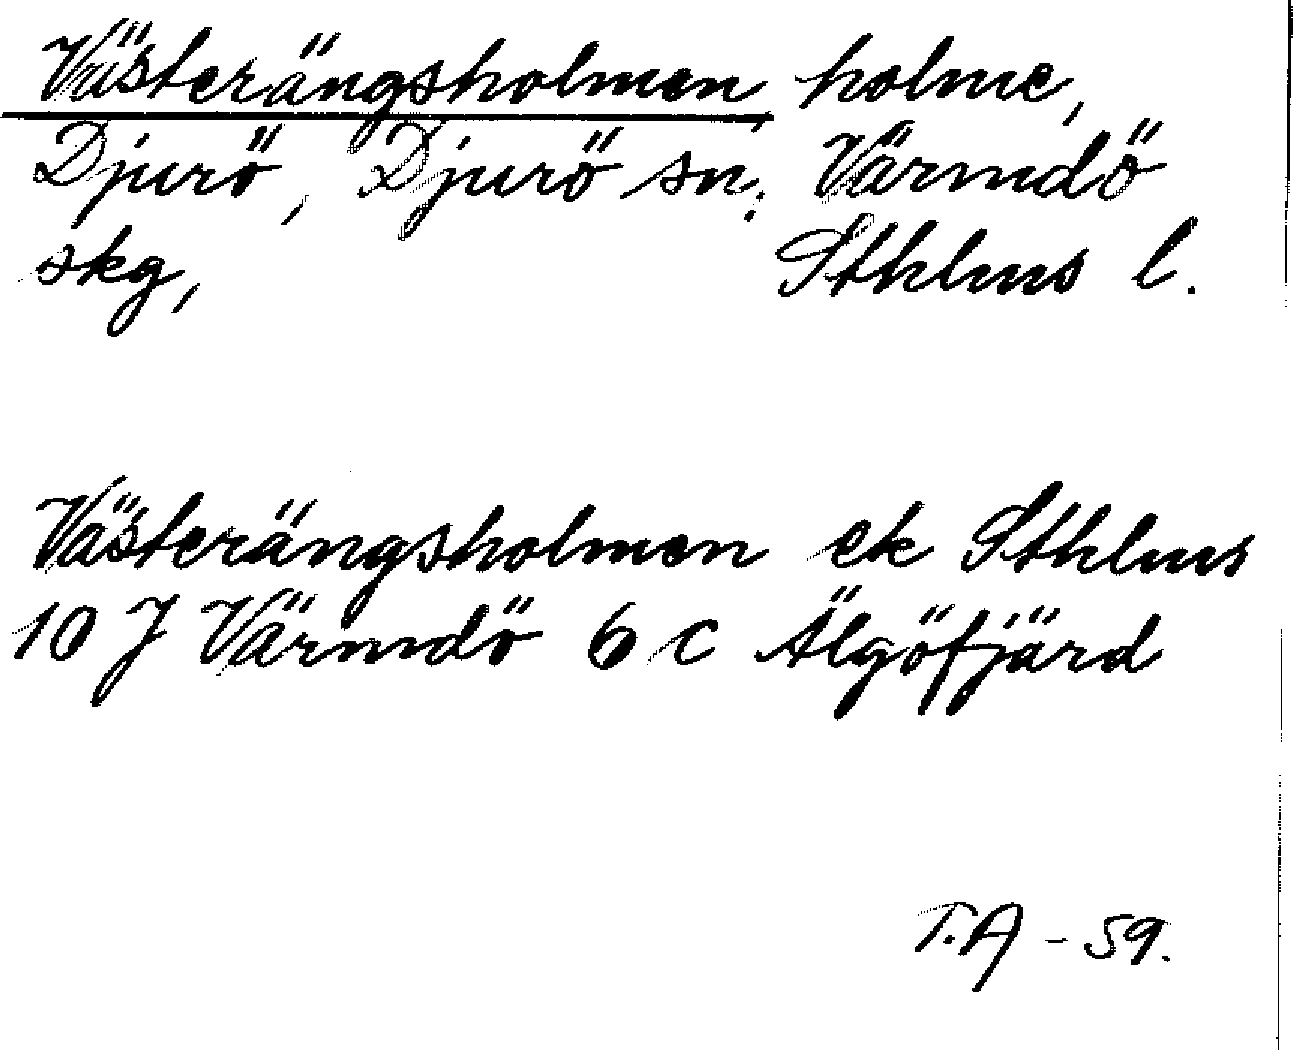 Västerängsholmen, holme,
Djurö, Djurö sn, Värmdö
skg, Sthlms l.
Västerängsholmen ek Sthlms
10 J Värmdö 6 c Älgöfjärd
T.A - 59.